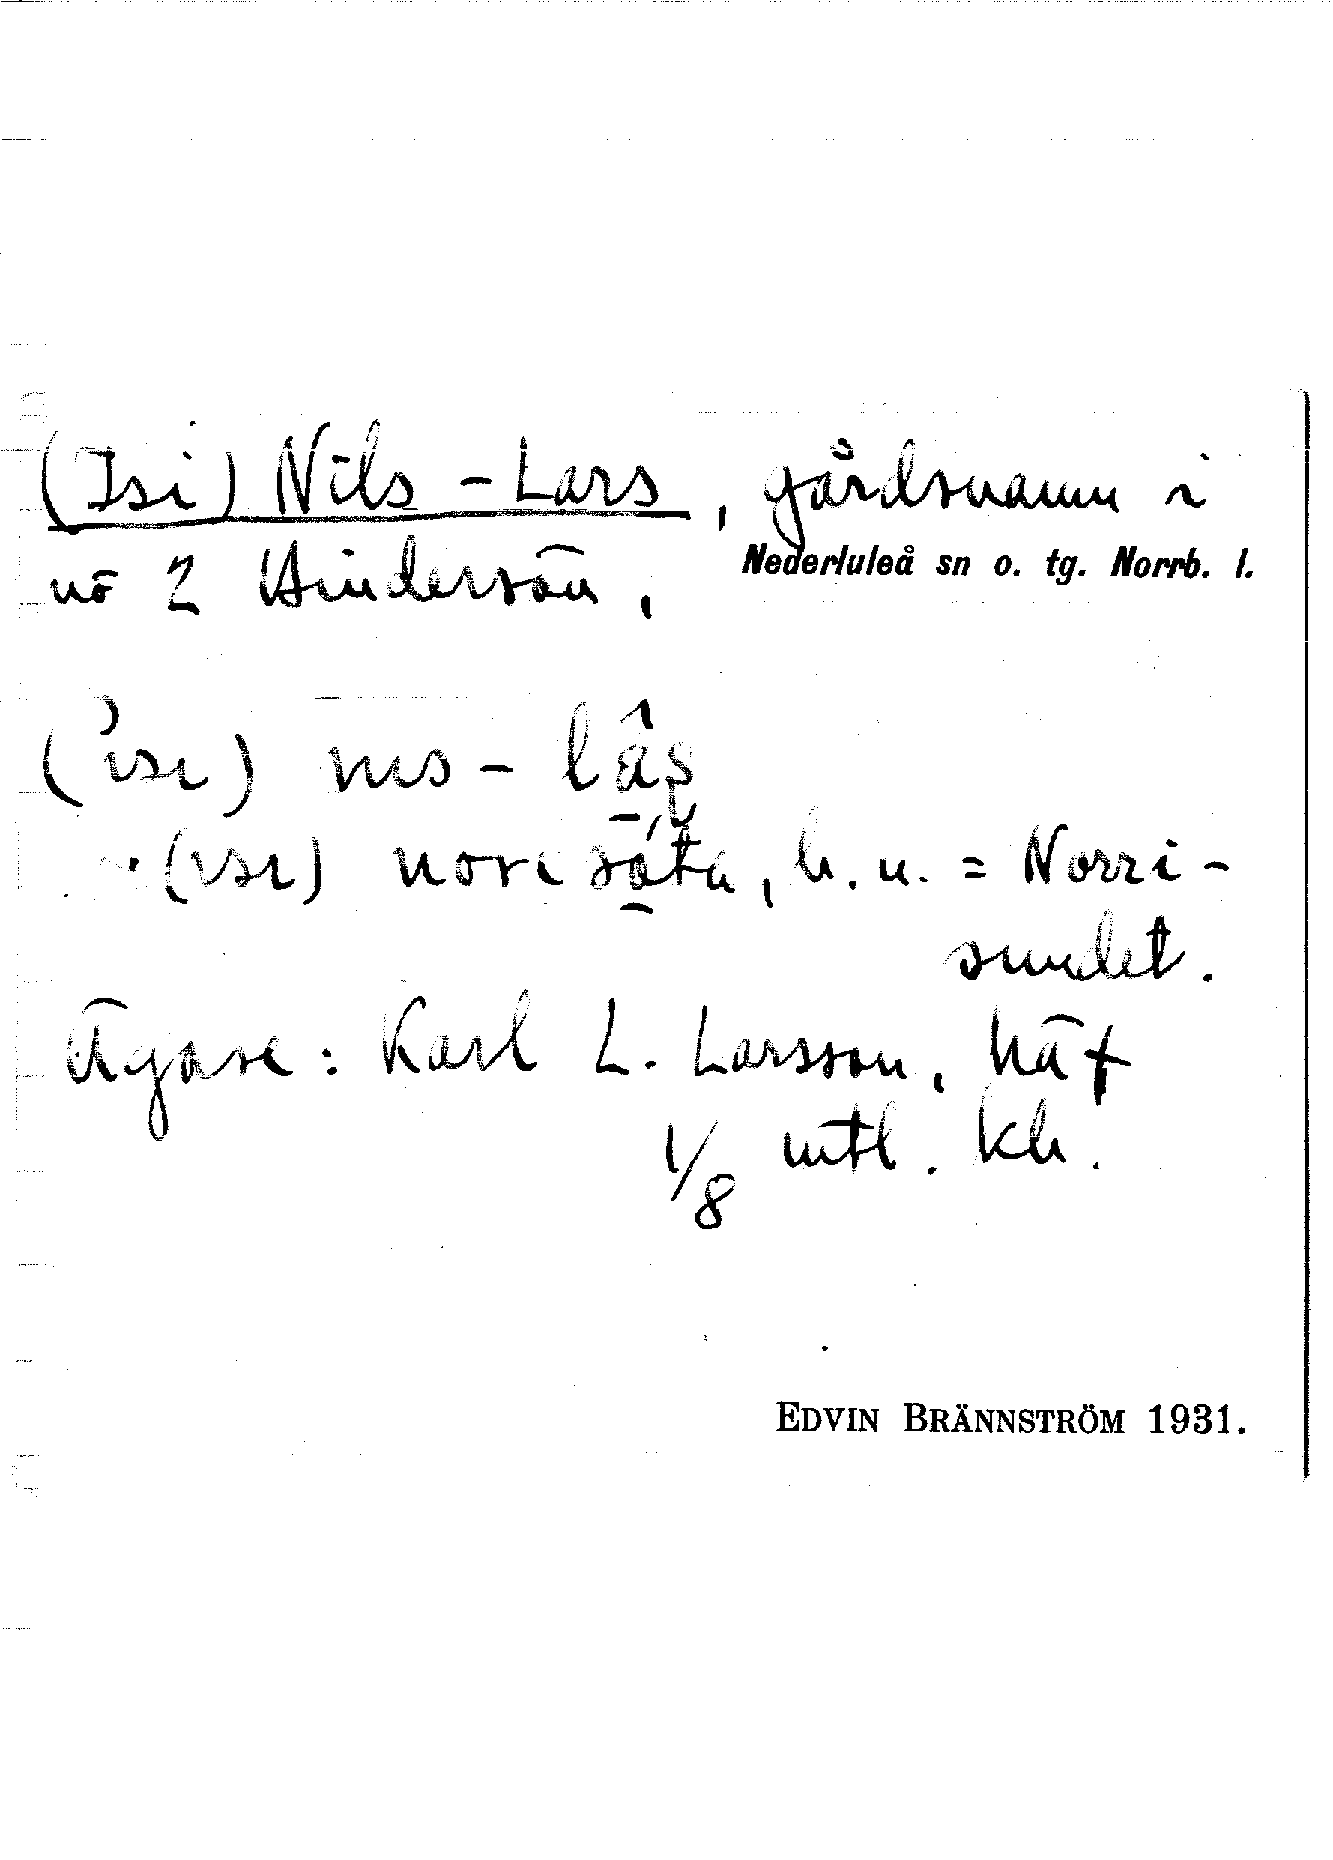 (Isi) Nils-Lars, gårdsnamn i
nö 2 Hindersön, Nederluleå sn o. tg. Norrb. l.
(isɩ) nɩs-
(ɩsɩ) h. u. = Norri-
sundet.
Ägare: Karl L. Larsson,
1/8 mtl. kh.
EDVIN BRÄNNSTRÖM 1931.